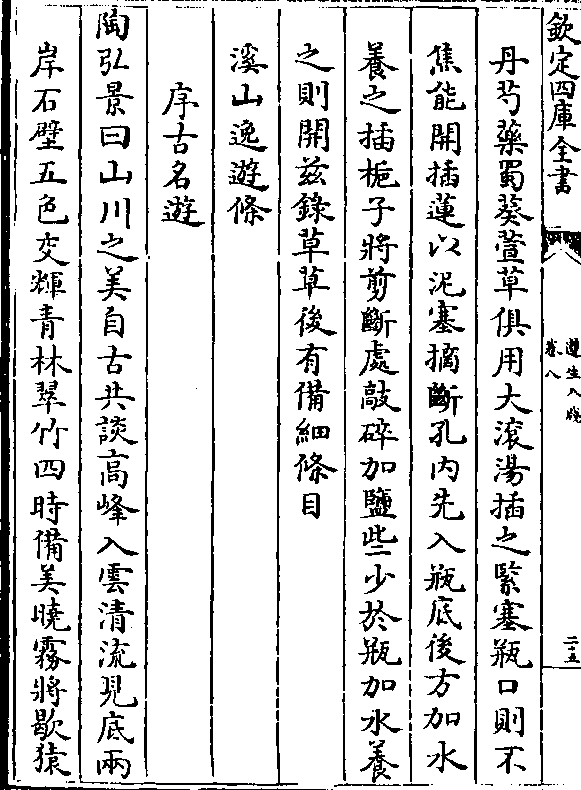 欽定四庫全書
遵生八牋
卷八
二十五
丹芍藥蜀葵萱草俱用大滾湯插之緊塞瓶口則不
焦能開插蓮以泥塞摘斷孔內先入瓶底後方加水
養之插梔子將剪斷處敲碎加鹽些少於瓶加水養
之則開兹錄草草後有備細條目
溪山逸遊條
序古名遊
陶弘景曰山川之美自古共談高峰入雲清流見底兩
岸石壁五色交輝青林翠竹四時備美曉霧將歇猿